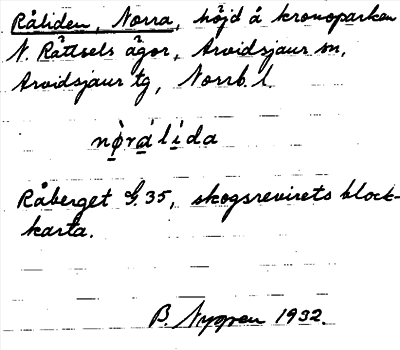 Råliden, Norra, höjd å kronoparken
N. Råttsels ägor, Arvidsjaur sn,
Arvidsjaur tg, Norrb. l.
nø̀ralída
Råberget G.35, skogsrevirets block-
karta.
B. Nygren 1932.